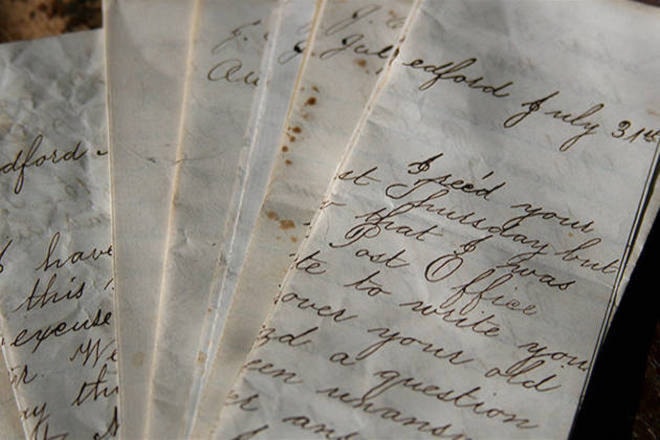 dford
I have
this
excuse
r. We
ay thi
Au
July
edford July 31st
I rec'd your
st Thursday but
that I was
Post Office
te to write you
over your old
nd a question
een unans
er an